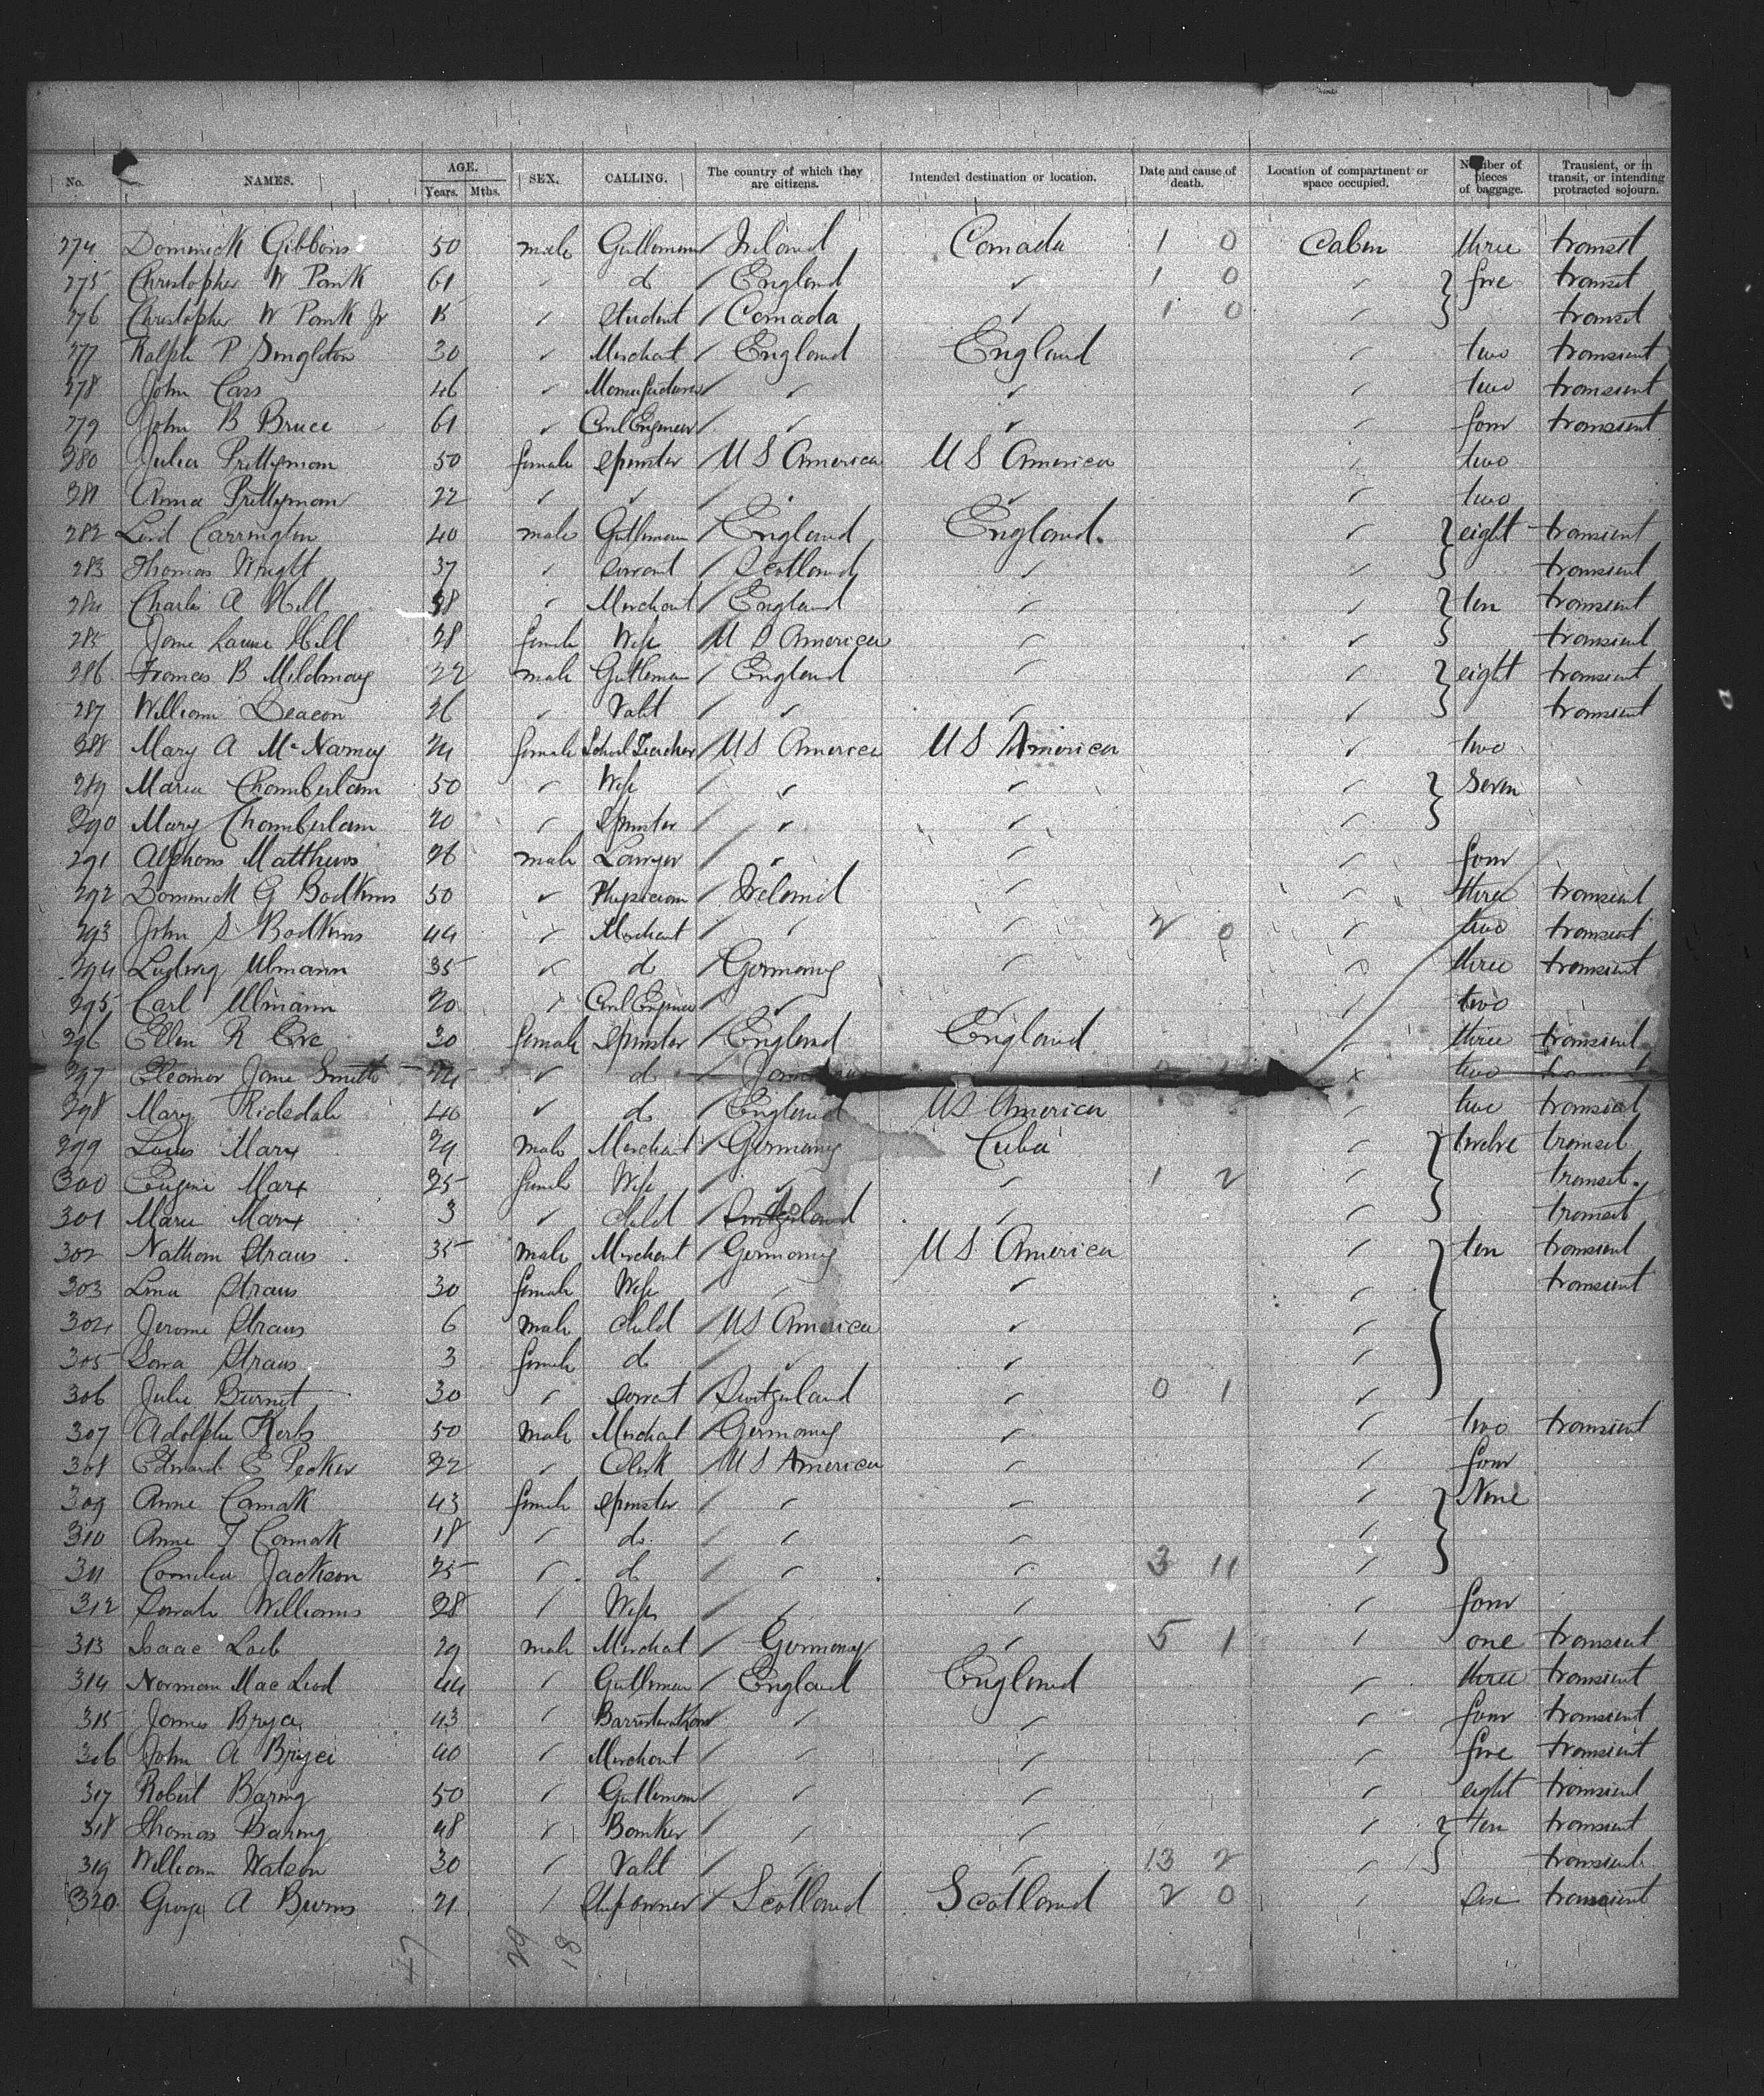 No. NAMES. AGE. Years. Mths. SEX. CALLING. The country of which they are citizens. Intended destination or location. Date and cause of death. Location of compartment or space occupied. Number of pieces of baggage. Transient, or in transit, or intending protracted sojourn.
274 Dominick Gibbons 50 male Gentleman Ireland Canada 1 0 Cabin three transit
275 Christopher W Pank 61 " d England " 1 0 " five transit
276 Christopher W Pank Jr 15 " Student Canada " 1 0 " transit
277 Ralph P Singleton 30 " Merchant England England " two transient
278 John Cass 46 " Manufacturer " " " two transient
279 John B Bruce 61 " Civil Engineer " " " four transient
280 Julia Prettyman 50 female Spinster U S America U S America " two
281 Anna Prettyman 22 " " " " " two
282 Lord Carrington 40 male Gentleman England England. " eight transient
283 Thomas Wright 37 " Servant Scotland " " transient
284 Charles A Hill 38 " Merchant England " " ten transient
285 Jane Laura Hill 28 female Wife U S America " " transient
286 Francis B Mildmay 22 male Gentleman England " " eight transient
287 William Deacon 26 " Valet " " " transient
288 Mary A McNamey 24 female School Teacher US America US America " two
289 Maria Chamberlain 50 " Wife " " " Seven
290 Mary Chamberlain 20 " Spinster " " "
291 Alphons Matthews 26 male Lawyer " " " four
292 Dominick G Bodkins 50 " Physician Ireland " " three transient
293 John S Bodkins 44 " Merchant " " 2 0 " two transient
294 Ludwig Ulmann 35 " d Germany " " three transient
295 Carl Ulmann 20 " Civil Engineer " " " two
296 Ellen R Eve 30 female Spinster England England " three transient
297 Eleanor Jane Smith " d two
298 Mary Ridsdale 40 " d England US America " two transient
299 Louis Marx 29 male Merchant Germany Cuba " twelve transit
300 Eugine Marx 25 female Wife " " 1 2 " transit.
301 Marie Marx 3 " child do " " transit
302 Nathan Straus 35 male Merchant Germany U S America " ten transient
303 Lina Straus 30 female Wife " " " transient
304 Jerome Straus 6 male child US America " "
305 Sara Straus 3 female d " " "
306 Julie Burnet 30 " Servant Switzerland " 0 1 "
307 Adolphe Kerbs 50 male Merchant Germany " " two transient
308 Edward E Pecker 22 " Clerk U S America " " four
309 Anne Camak 43 female Spinster " " " Nine
310 Anne T Camak 18 " do. " " "
311 Cornelia Jackson 25 " d " " 3 11 "
312 Sarah Williams 28 " Wife " " " four
313 Isaac Loeb 29 male Merchant Germany " 5 1 " one transient
314 Norman Mac Leod 44 " Gentleman England England " three transient
315 James Bryce 43 " Barrister " " " four transient
316 John A Bryce 40 " Merchant " " " five transient
317 Robert Baring 50 " Gentleman " " " eight transient
318 Thomas Baring 48 " Banker " " " Ten transient
319 William Watson 30 " Valet " " 13 2 " transient
320. George A Burns 21 " Shipowner Scotland Scotland 2 0 " Six transient
47 29 18